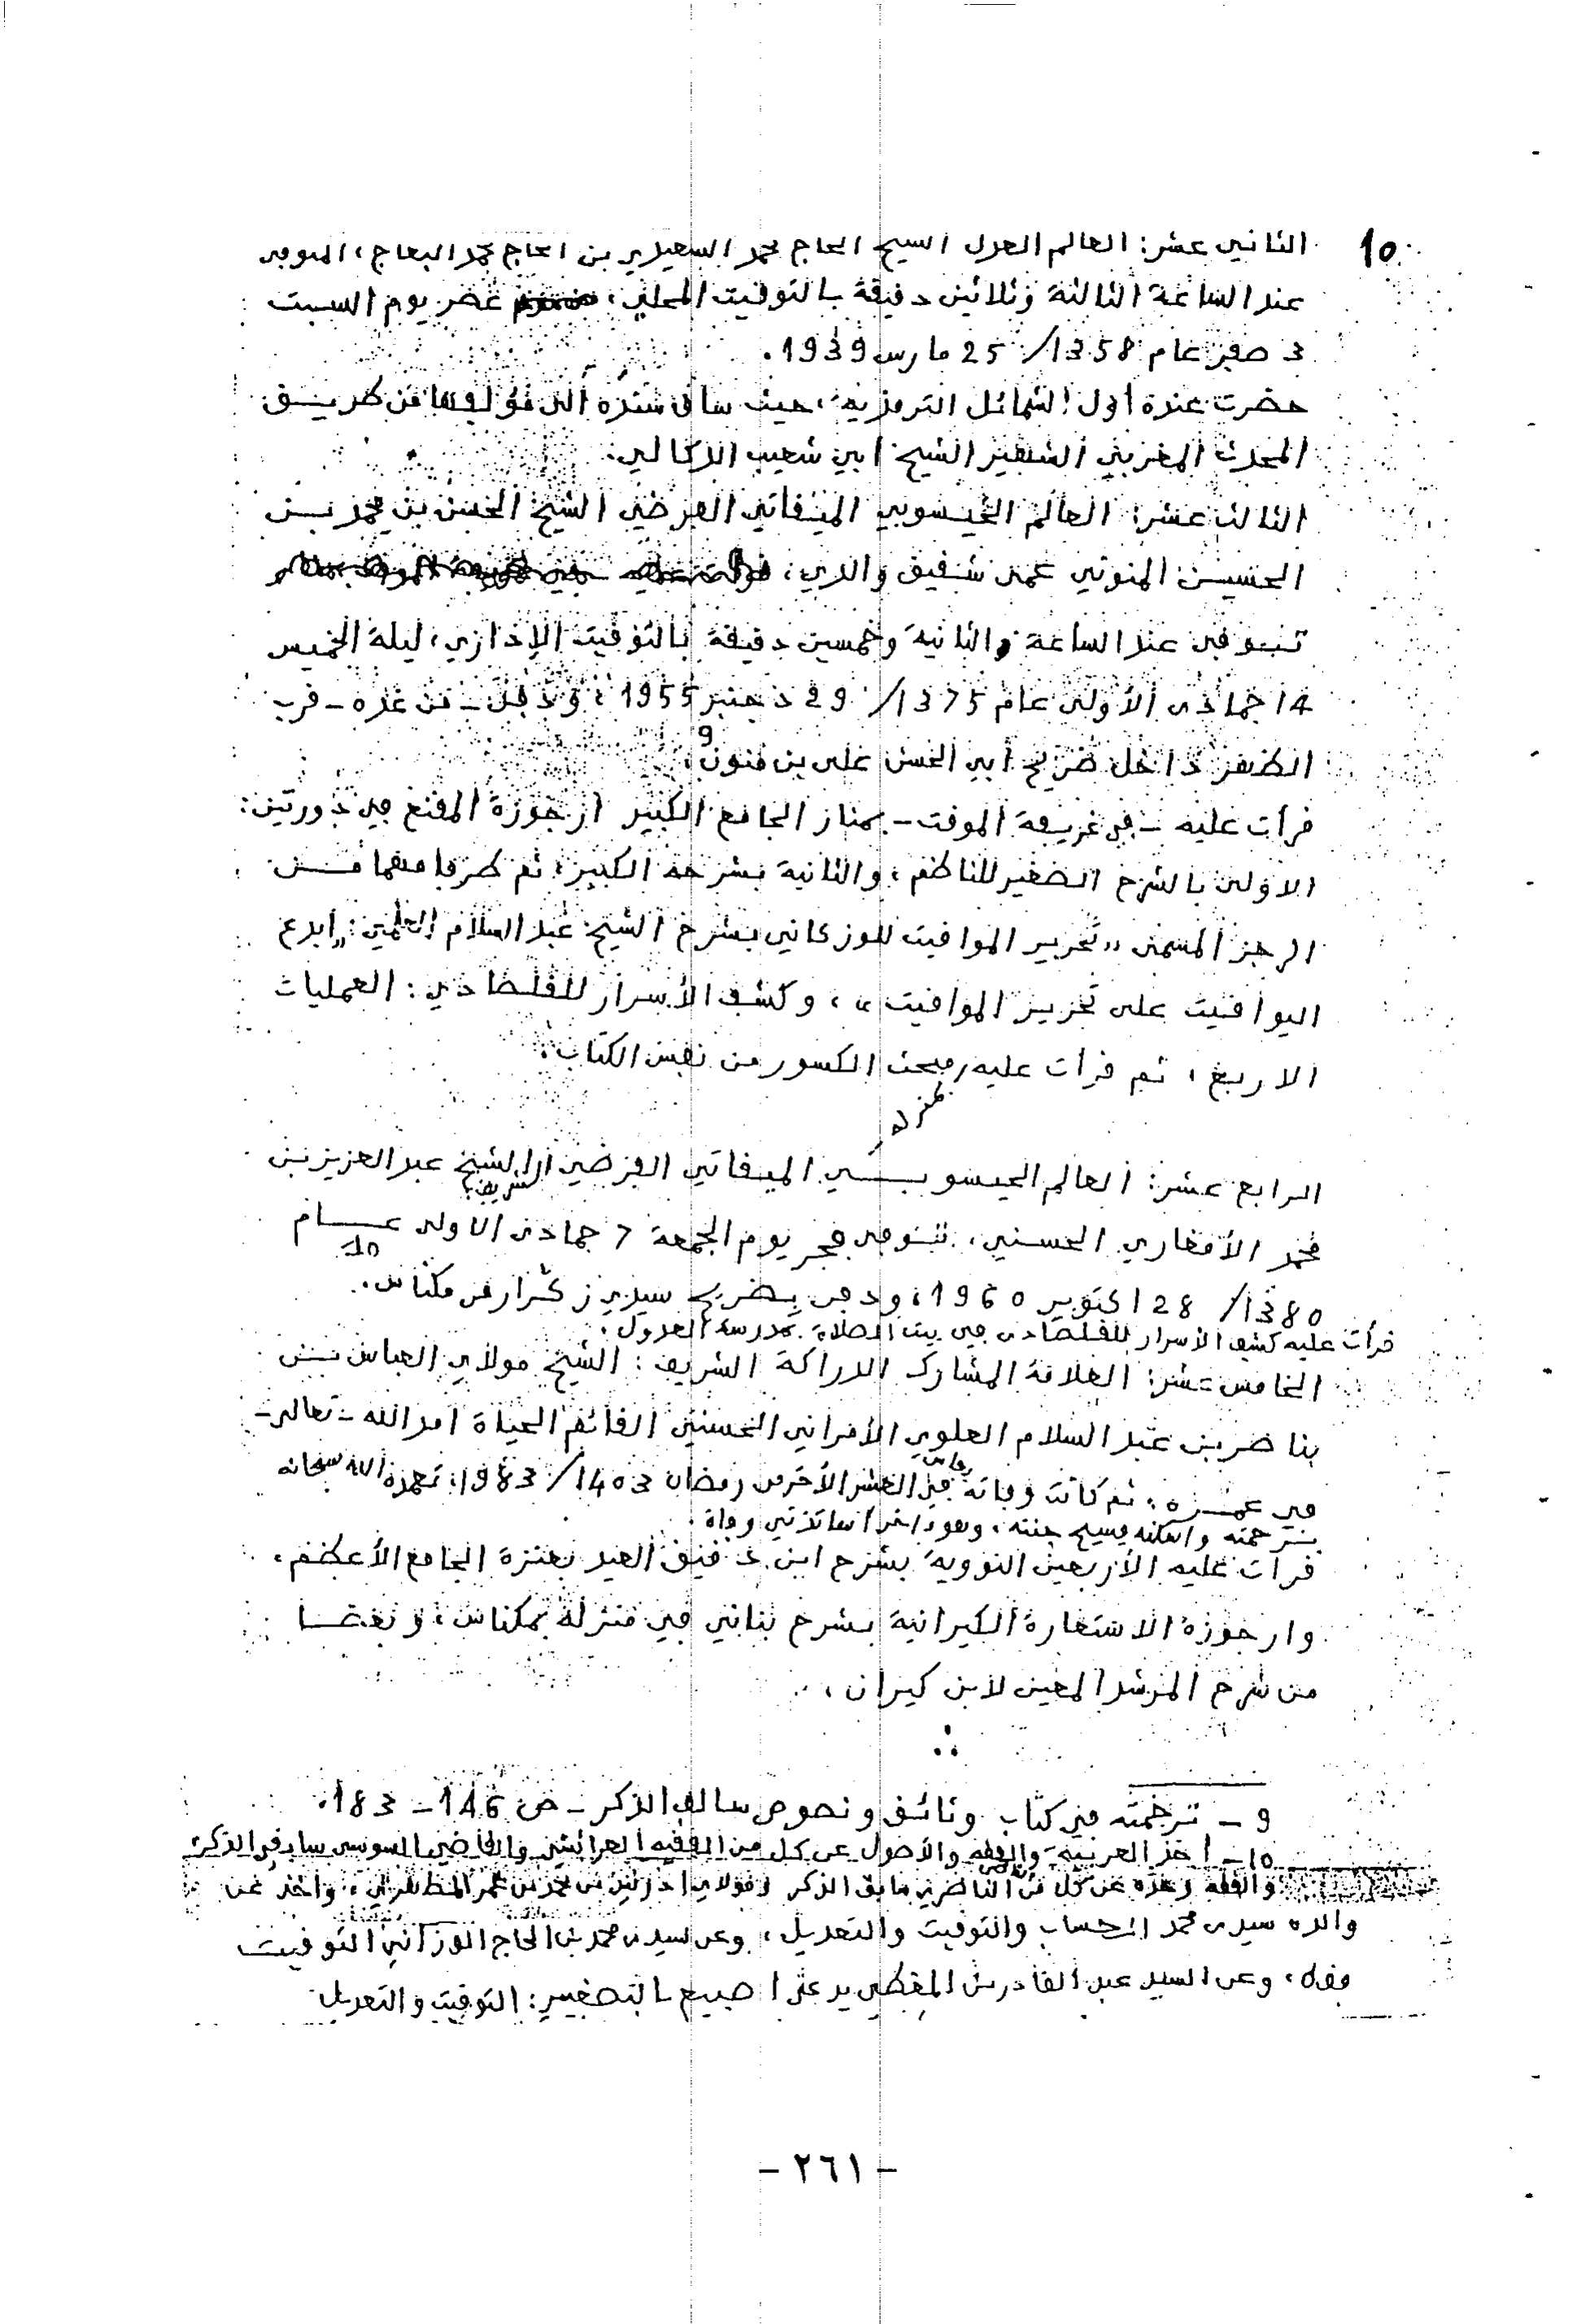 10
الثاني عشر: العالم العدل السيخ الحاج محمد السعيدي بن الحاج محمد البعاج، المتوفى
عند الساعة الثالثة وثلاثين دقيقة بالتوقيت المحلي، عصر يوم السبت
3 صفر عام 1358/ 25 مارس 1939.
حضرت عنده أول الشمائل الترمذية، حيث ساق سنده الى مؤلفها من طريق
المحدث المغربي الشهير الشيخ ابي شعيب الدكالي.
الثالث عشر: العالم الحيسوبي الميقاتي الفرضي الشيخ الحسن بن محمد بن
الحسين المنوني عمي شقيق والدي،
توفي عند الساعة الثانية وخمسين دقيقة بالتوقيت الإداري، ليلة الخميس
14 جمادى الأولى عام 1375/ 29 دجنبر 1955، ودفن - من غده - قرب
الظهر داخل ضريح أبي الحسن علي بن منون 9.
قرأت عليه - في غريفة الموقت - بمنار الجامع الكبير ارجوزة المقنع في دورتين:
الاولى بالشرح الصغير للناظم، والثانية بشرحه الكبير، ثم طرفا مهما من
الرجز المسمى "تحرير المواقيت للوزكاني بشرح الشيخ عبد السلام العلمي: "ابدع
اليواقيت على تحرير المواقيت"، وكشف الأسرار للقلصادي: العمليات
الاربع، ثم قرأت عليه بمنزله مبحث الكسور من نفس الكتاب.
الرابع عشر: العالم الحيسوبي الميقاتي الفرضي الشريف الشيخ عبد العزيز بن
محمد الأمغاري الحسني، توفي فجر يوم الجمعة 7 جمادى الاولى عام
1380/ 28 اكتوبر 1960، ودفن بضريح سيدي زكرار من مكناس. 10
قرأت عليه كشف الأسرار للقلصادي في بيت الصلاة بمدرسة العدول.
الخامس عشر: العلامة المشارك الدراكة الشريف: الشيخ مولاي العباس بن
بناصر بن عبد السلام العلوي الأمراني الحسني القائم الحياة امد الله - تعالى -
في عمره، ثم كانت وفاته بفاس في العشر الأخر من رمضان 1403/ 1983، تغمده الله سبحانه
برحمته واسكنه فسيح جنته، وهو اخر اساتذتي وفاة.
قرأت عليه الأربعين النووية بشرح ابن دقيق العيد بعنزة الجامع الأعظم،
وارجوزة الاستعارة الكيرانية بشرح بناني في منزله بمكناس، وبعضا
من شرح المرشد المعين لابن كيران،
9 - ترجمته في كتاب وثائق ونصوص سالف الذكر - ص 146 - 183.
10 - أخذ العربية والفقه والأصول عن كل من الفقيه العرائشي والقاضي السوسي سابقي الذكر،
والفقه وحده عن كل من القاضي الناصري سابق الذكر ومولاي ادريس بن محمد بن عمر، وأخذ عن
والده سيدي محمد الحساب والتوقيت والتعديل، وعن سيدي محمد بن الحاج الوزاني التوقيت
فقط، وعن السيد عبد القادر بن المفضل يدعى اصبيع بالتصغير: التوقيت والتعديل
- ٢٦١ -